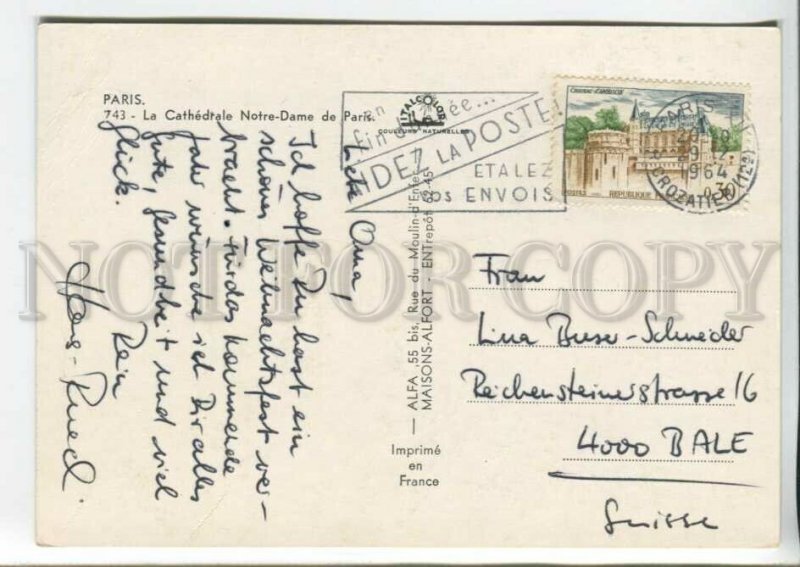 PARIS.
743 - La Cathédrale Notre-Dame de Paris.
ITALCOLOR
COULEURS NATURELLES
en
fin
AIDEZ LA POSTE
ETALEZ
VOS ENVOIS
CHATEAU D'AMBOISE
PARIS
29-12
1964
CROZATIER (12e)
0,30
Liebe Oma,
Ich hoffe Du hast ein
schönes Weihnachtsfest ver-
bracht. Für das kommende
Jahr wünsche ich Dir alles
Gute, Gesundheit und viel
Glück.
Dein
Hans-Ruedi.
ALFA, 55 bis, Rue du Moulin-d'Enfer
MAISONS-ALFORT - ENTrepôt 62-45
Imprimé
en
France
Frau
Lina Buser-Schneider
Reichensteinerstrasse 16
4000 BALE
Suisse
NOT FOR COPY